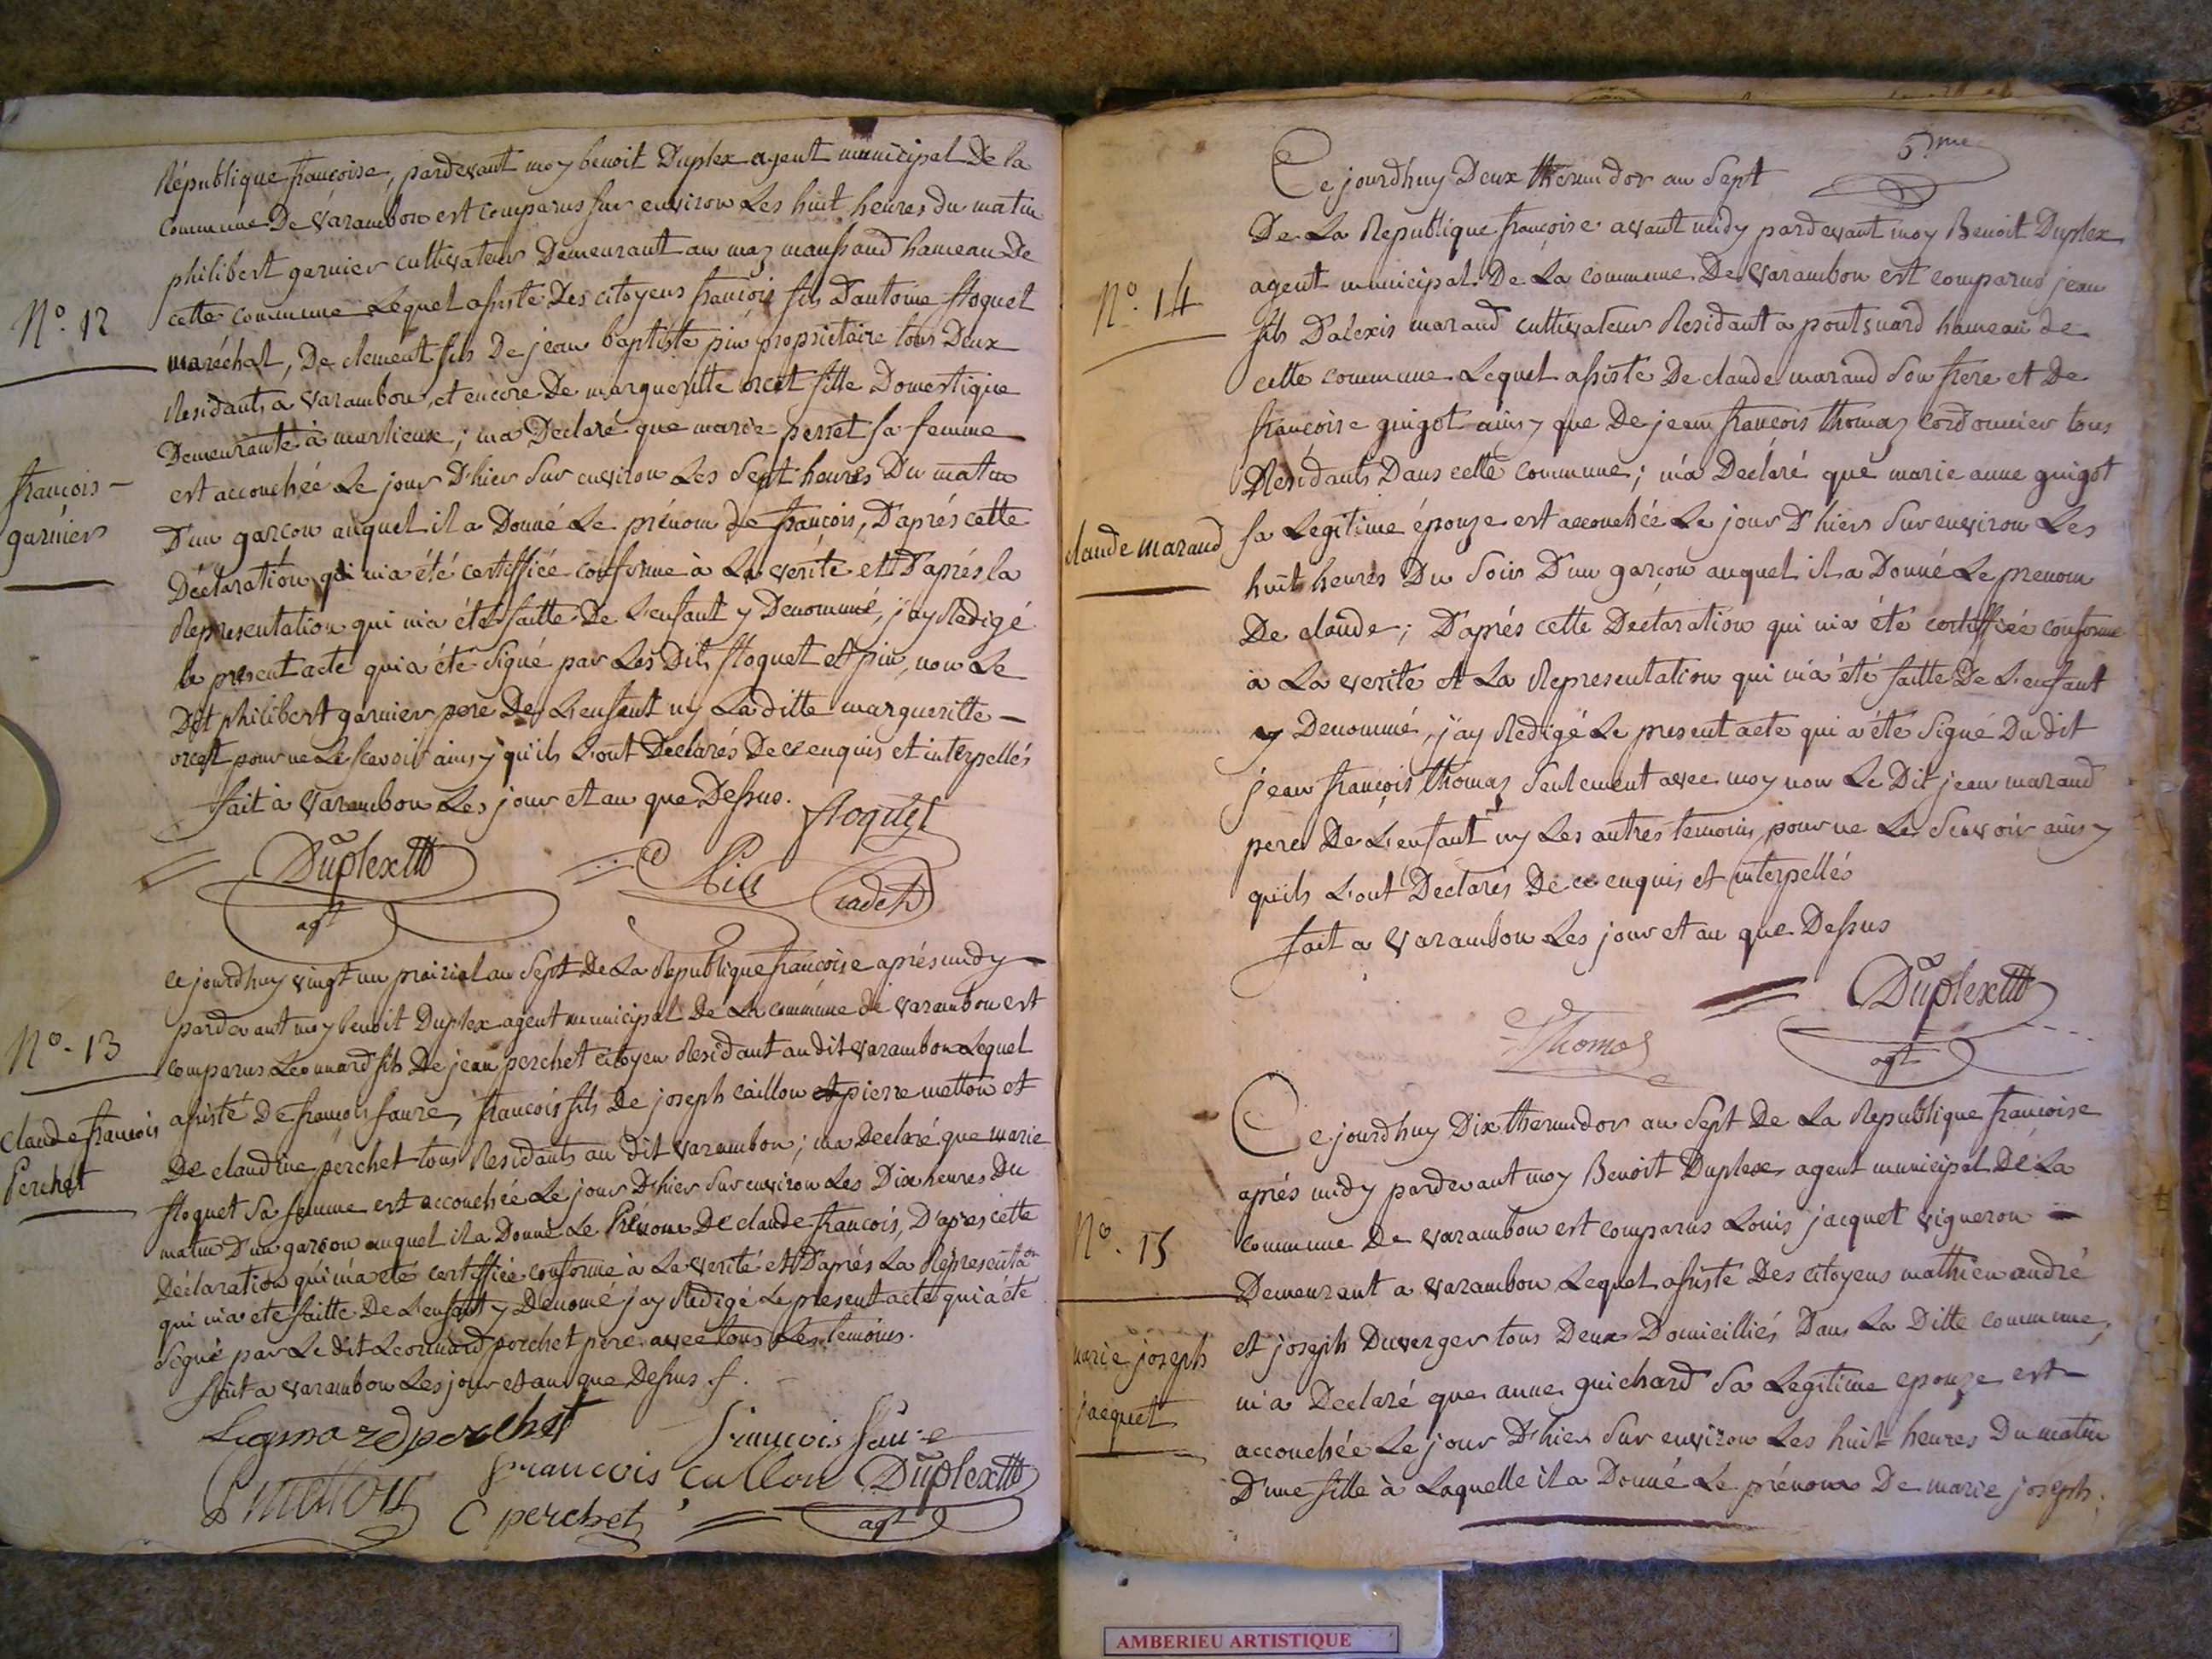 République françoise, pardevant moy benoit Duplex agent municipal De la
Commune De Varambon est comparus sur environ Les huit heures du matin
philibert garnier cultivateur Demeurant au maz hameau De
N.° 12
cette commune Lequel assisté Des citoyens françois fils D'antoine floquet
maréchal, De clement fils De jean baptiste pin propriétaire tous Deux
Residants a Varambon, et encore De margueritte orcet fille Domestique
Demeurante à marlieux; m'a Declaré que marie perret sa femme
françois
garnier
est accouchée Le jour D'hier Sur environ Les Sept heures Du matin
D'un garçon auquel il a Donné Le prénom de françois, D'aprés cette
Déclaration qui m'a été certiffiée conforme à La verité et D'aprés la
Representation qui m'a été faitte De L'enfant y Denommé, j'ay Redigé
le present acte qui a été signé par Les Dits floquet et pin, non Le
Dit philibert garnier pere De L'enfant ny La ditte margueritte
orcet pour ne Le scavoir ainsy qu'ils L'ont Declarés De ce enquis et interpellés
fait à Varambon Les jour et an que Dessus.
floquet
Duplex
agt
Pin
cadet
ce jourdhuy vingt un prairial an Sept De La Republique françoise aprés midy
pardevant moy benoit Duplex agent municipal De La commune de Varambon est
N.° 13
comparus Leonnard fils De jean perchet citoyen Residant au dit Varambon Lequel
Claude françois
Perchet
assisté De françois faure, françois fils De joseph caillon et pierre metton et
De claudine perchet tous Residants au dit Varambon; m'a Declaré que marie
floquet Sa femme est accouchée Le jour D'hier Sur environ Les Dix heures Du
matin D'un garçon auquel il a Donné Le Prénom De claude françois, D'aprés cette
Déclaration qui m'a été certiffiée conforme à La verité et D'aprés La Representaon
qui m'a ete faitte De L'enfant y Denomé j'ay Redigé Le present acte qui a été
Signé par Le dit Leonnard perchet pere avec tous Les temoins.
fait a Varambon Les jour et an que Dessus. f.
Leonnard perchet
françois faure
P metton
françois Caillon
Duplex
C perchet
agt
5.me
Ce jourdhuy Deux thermidor an Sept
De La Republique françoise avant midy pardevant moy Benoit Duplex
N.° 14
agent municipal De La commune De Varambon est comparus jean
fils D'alexis marand cultivateur Residant a hameau de
cette commune Lequel assisté De claude marand Son frere et De
françoise guigot ainsy que De jean françois thomas cordonnier tous
Residants Dans cette commune; m'a Declaré que marie anne guigot
claude marand
Sa Legitime épouze est accouchée Le jour D'hiers Sur environ Les
huit heures Du Soir D'un garçon auquel il a Donné Le prenom
De claude; D'aprés cette Declaration qui m'a été certiffiée conforme
à La verité et La Representation qui m'a été faitte De L'enfant
y Denommé, j'ay Redigé Le present acte qui a été Signé Du dit
jean françois thomas Seulement avec moy non Le Dit jean marand
pere De L'enfant ny Les autres temoins, pour ne Le Scavoir ainsy
qu'ils L'ont Declarés De ce enquis et interpellés
fait a Varambon Les jour et an que Dessus
Duplex
agt
Thomas
Ce jourdhuy Dix thermidor an Sept De La Republique françoise
aprés midy pardevant moy Benoit Duplex agent municipal De La
N.° 15
commune De Varambon est comparus Louis jacquet vigneron
Demeurant a Varambon Lequel assisté Des citoyens mathieu andré
marie joseph
jacquet
et joseph Duverger tous Deux Domicilliés Dans La Ditte commune;
m'a Declaré que anne guichard Sa Legitime epouze est
accouchée Le jour D'hier Sur environ Les huit heures Du matin
D'une fille à Laquelle il a Donné Le prénom De marie joseph.
AMBERIEU ARTISTIQUE